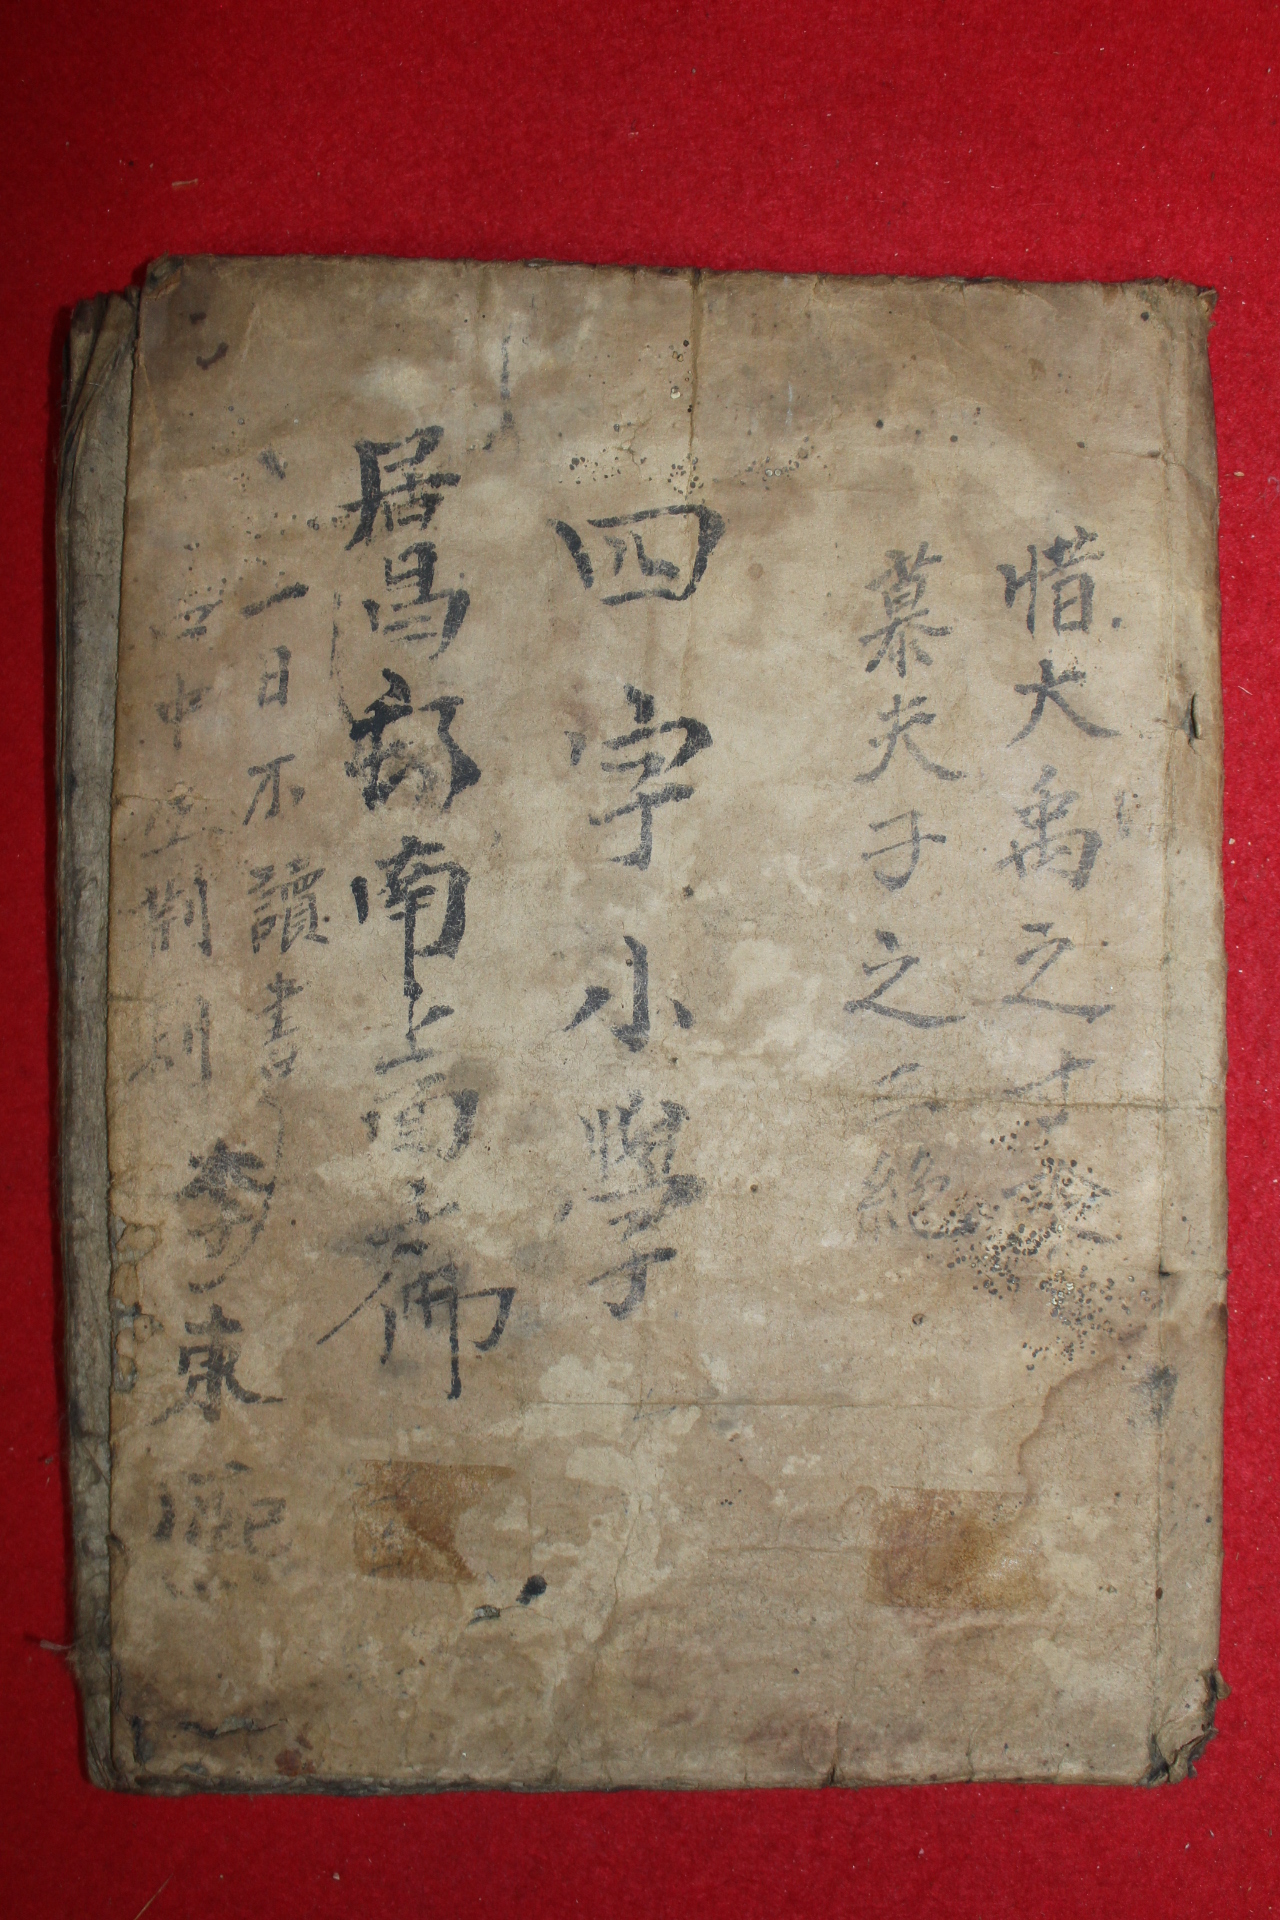 惜大禹之寸陰
慕夫子之三絶
四字小學
居昌郡南上面
一日不讀書
口中生荆棘
李東熙